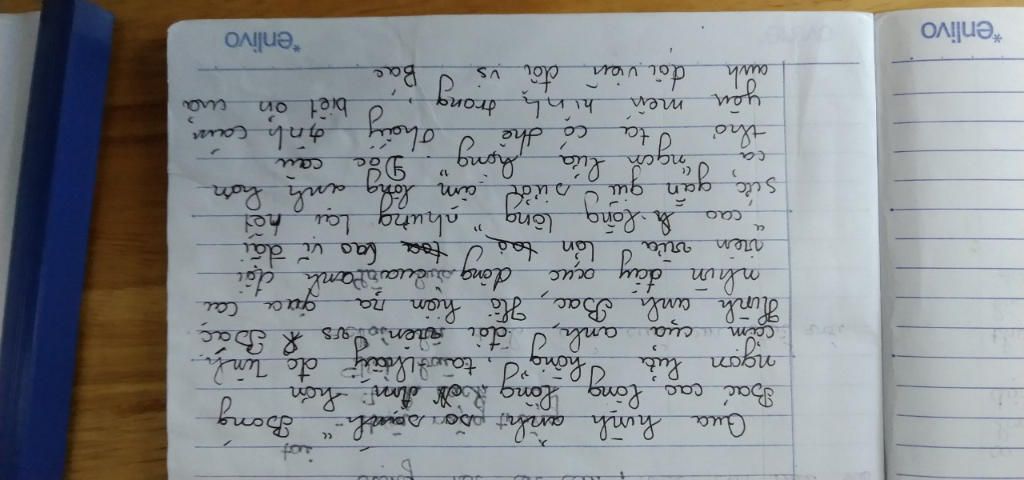 Qua hình ảnh so sánh "Bóng
Bác cao lồng lộng, ấm hơn
ngọn lửa hồng", ta thấy đc tình
cảm của anh đội viên vs Bác.
Hình ảnh Bác Hồ hiện ra qua cái
nhìn đầy xúc động của anh đội
viên vừa lớn lao vĩ đại
"cao lồng lộng" nhưng lại hết
sức gần gũi sưởi ấm lòng anh hơn
cả "ngọn lửa hồng". Đọc câu
thơ ta có thể thấy tình cảm
yêu mến kính trọng, biết ơn của
anh đội viên đối vs Bác
*enlivo
*enlivo